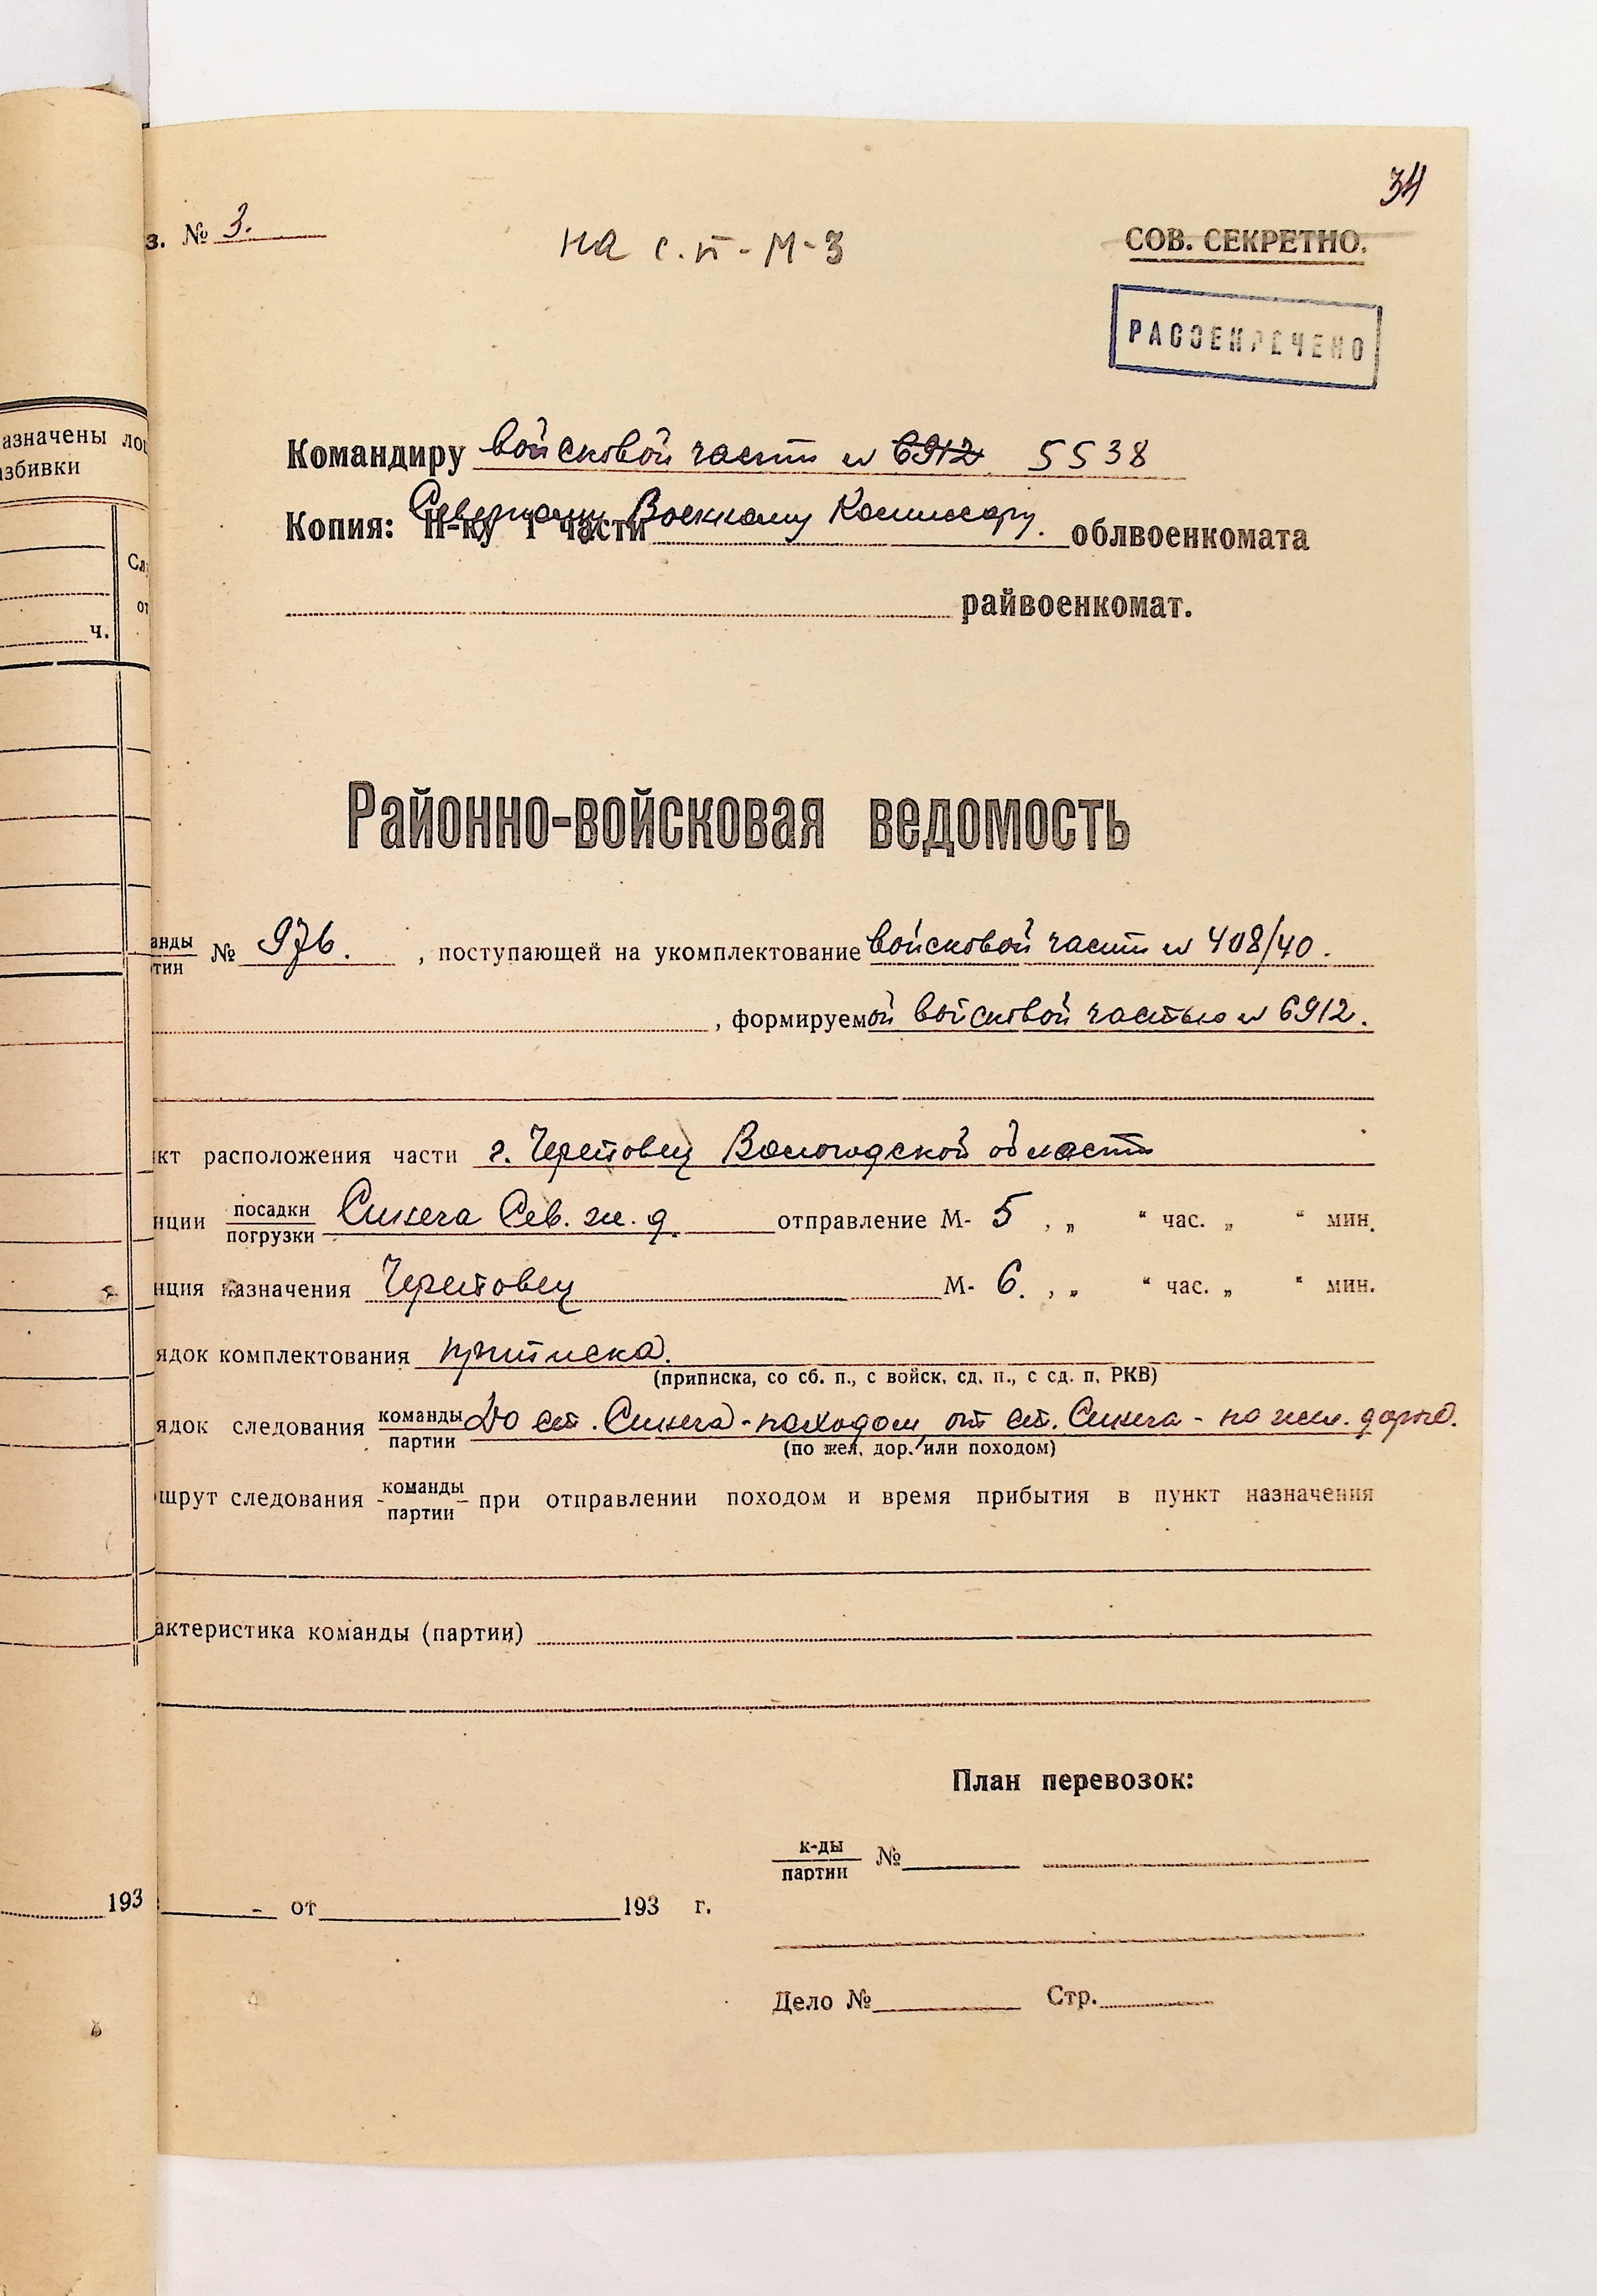 34
з. № 3.
на с.п - М-3
СОВ. СЕКРЕТНО.
РАССЕКРЕЧЕНО
азначены лош
азбивки
Сл
от
ч.
Командиру войсковой части № 6912 5538
Копия: Н-ку 1 части Северному Военному Комиссару. облвоенкомата
райвоенкомат.
Районно-войсковая ведомость
анды
тии № 976. , поступающей на укомплектование войсковой части № 408/40.
, формируемой войсковой частью № 6912.
нкт расположения части г. Череповец Вологодской области
нции посадки
погрузки Синега Сев. ж. д. отправление М- 5 , „ “ час. „ “ мин.
нция назначения Череповец М- 6. , „ “ час. „ “ мин.
ядок комплектования приписка.
(приписка, со сб. п., с войск. сд. п., с сд. п. РКВ)
ядок следования команды
партии До ст. Синега - походом, от ст. Синега - по жел. дороге.
(по жел. дор. или походом)
шрут следования команды
партии при отправлении походом и время прибытия в пункт назначения
актеристика команды (партии)
План перевозок:
к-ды
партии №
193 - от 193 г.
Дело № Стр.